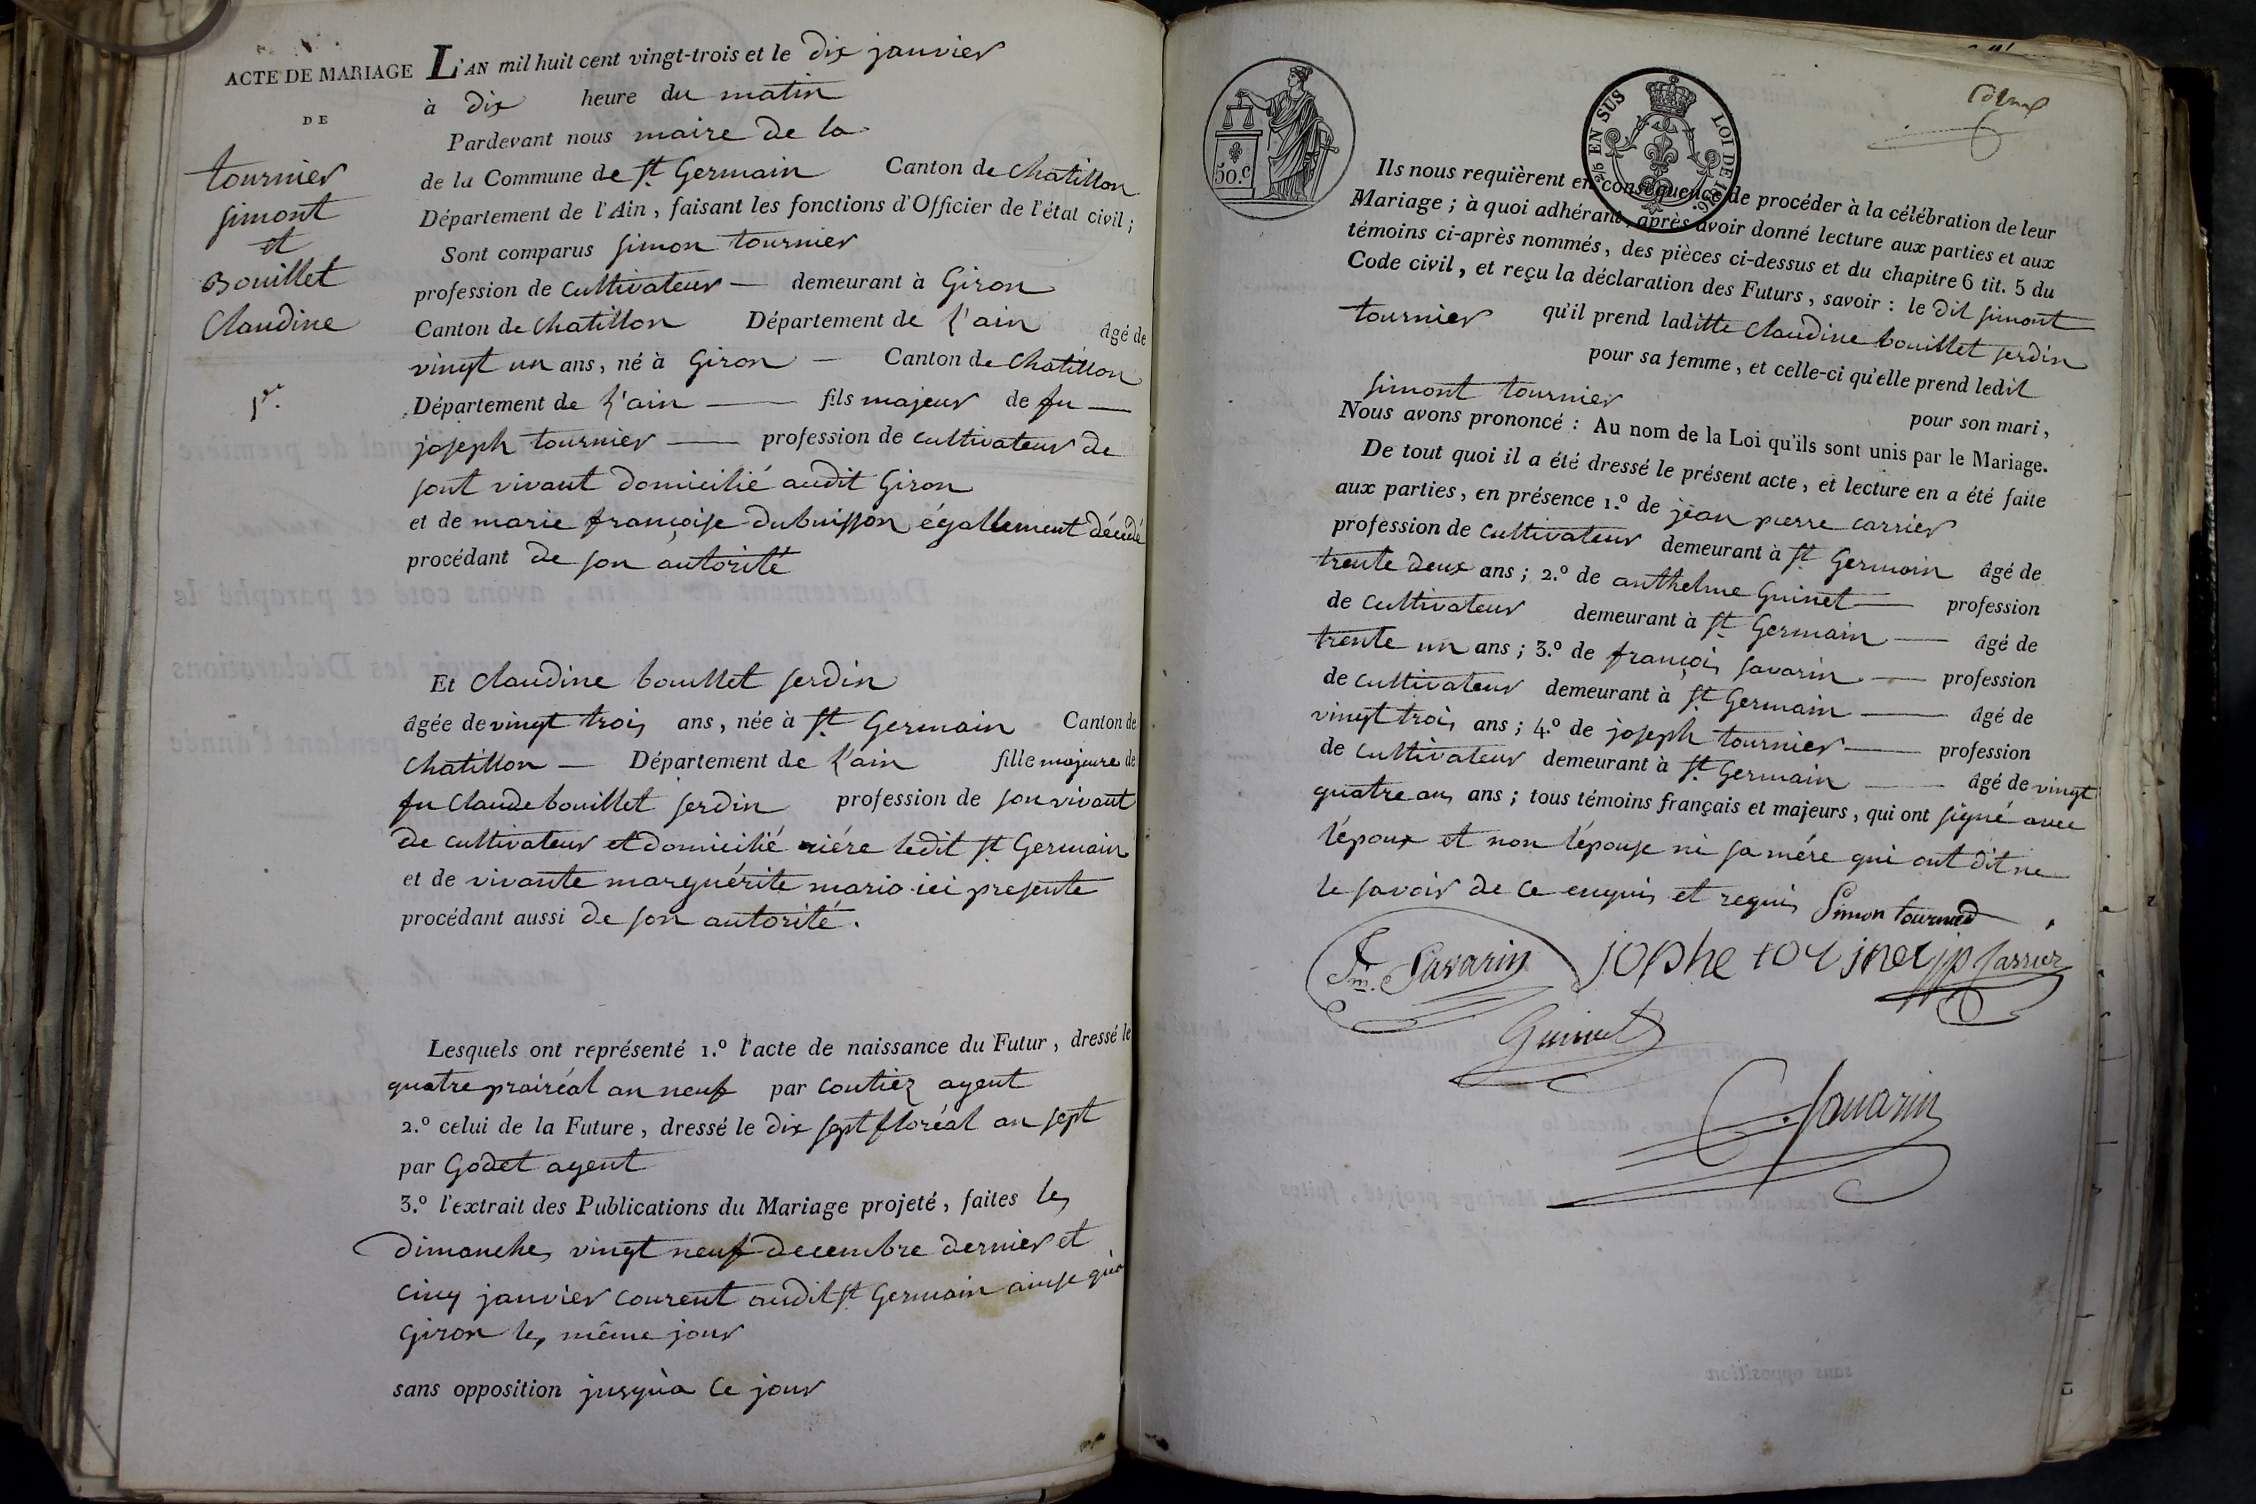 ACTE DE MARIAGE
DE
tournier
simont
et
Bouillet
Claudine
1re.
L'AN mil huit cent vingt-trois et le dix janvier
à dix heure du matin
Pardevant nous maire de la
de la Commune de St Germain Canton de Chatillon
Département de l'Ain, faisant les fonctions d'Officier de l'état civil ;
Sont comparus simon tournier
profession de cultivateur — demeurant à Giron
Canton de Chatillon Département de L'ain âgé de
vingt un ans, né à Giron — Canton de Chatillon
Département de L'ain — fils majeur de fu —
joseph tournier — profession de cultivateur de
sont vivant domicilié audit Giron
et de marie françoise dubuisson égallement décédé
procédant de son autorité
Et Claudine bouillet serdin
âgée de vingt trois ans, née à St Germain Canton de
Chatillon — Département de L'ain fille majeure de
fu Claude bouillet serdin profession de son vivant
de cultivateur et domicilié riére ledit St Germain
et de vivante marguérite mario ici presente
procédant aussi de son autorité.
Lesquels ont représenté 1.º l'acte de naissance du Futur, dressé le
quatre prairéal an neuf par coutier agent
2.º celui de la Future, dressé le dix sept floréal an sept
par Godet agent
3.º l'extrait des Publications du Mariage projeté, faites les
dimanches vingt neuf decembre dernier et
cinq janvier courent audit St Germain ainse qua
Giron les même jour
sans opposition jusqu'a ce jour
50.c
2/5 EN SUS LOI DE 1816.
Ils nous requièrent en conséquence de procéder à la célébration de leur
Mariage ; à quoi adhérant, après avoir donné lecture aux parties et aux
témoins ci-après nommés, des pièces ci-dessus et du chapitre 6 tit. 5 du
Code civil, et reçu la déclaration des Futurs, savoir : le dit simont
tournier qu'il prend laditte Claudine bouillet serdin
pour sa femme, et celle-ci qu'elle prend ledit
simont tournier pour son mari,
Nous avons prononcé : Au nom de la Loi qu'ils sont unis par le Mariage.
De tout quoi il a été dressé le présent acte, et lecture en a été faite
aux parties, en présence 1.º de jean pierre carrier
profession de cultivateur demeurant à St Germain âgé de
trente deux ans ; 2.º de anthelme Guinet — profession
de cultivateur demeurant à St Germain — âgé de
trente un ans ; 3.º de françois savarin — profession
de cultivateur demeurant à St Germain — âgé de
vingt trois ans ; 4.º de joseph tournier — profession
de cultivateur demeurant à St Germain — âgé de vingt
quatre ans ans ; tous témoins français et majeurs, qui ont signé avec
l'époux et non l'épouse ni sa mére qui ont dit ne
le savoir de ce enquis et requis Simon tournier
Savarin jophe tournier jp Carrier
Guinet
Savarin